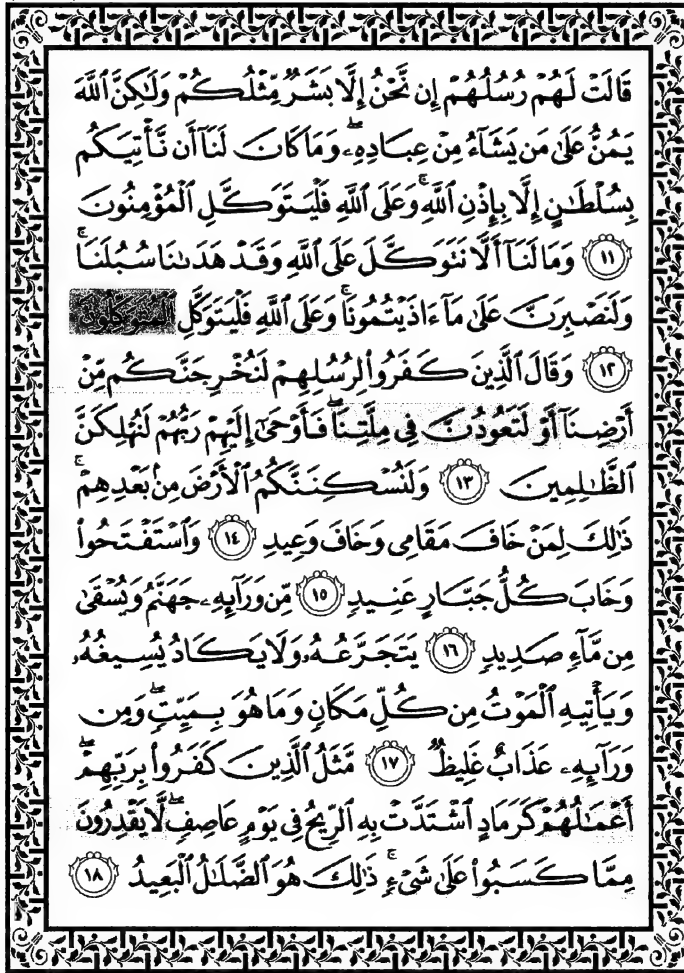 قَالَتْ لَهُمْ رُسُلُهُمْ إِن نَّحْنُ إِلَّا بَشَرٌ مِّثْلُكُمْ وَلَٰكِنَّ ٱللَّهَ
يَمُنُّ عَلَىٰ مَن يَشَآءُ مِنْ عِبَادِهِۦ ۖ وَمَا كَانَ لَنَآ أَن نَّأْتِيَكُم
بِسُلْطَٰنٍ إِلَّا بِإِذْنِ ٱللَّهِ ۚ وَعَلَى ٱللَّهِ فَلْيَتَوَكَّلِ ٱلْمُؤْمِنُونَ
﴿١١﴾ وَمَا لَنَآ أَلَّا نَتَوَكَّلَ عَلَى ٱللَّهِ وَقَدْ هَدَىٰنَا سُبُلَنَا ۚ
وَلَنَصْبِرَنَّ عَلَىٰ مَآ ءَاذَيْتُمُونَا ۚ وَعَلَى ٱللَّهِ فَلْيَتَوَكَّلِ ٱلْمُتَوَكِّلُونَ
﴿١٢﴾ وَقَالَ ٱلَّذِينَ كَفَرُوا۟ لِرُسُلِهِمْ لَنُخْرِجَنَّكُم مِّنْ
أَرْضِنَآ أَوْ لَتَعُودُنَّ فِى مِلَّتِنَا ۖ فَأَوْحَىٰٓ إِلَيْهِمْ رَبُّهُمْ لَنُهْلِكَنَّ
ٱلظَّٰلِمِينَ ﴿١٣﴾ وَلَنُسْكِنَنَّكُمُ ٱلْأَرْضَ مِنۢ بَعْدِهِمْ ۚ
ذَٰلِكَ لِمَنْ خَافَ مَقَامِى وَخَافَ وَعِيدِ ﴿١٤﴾ وَٱسْتَفْتَحُوا۟
وَخَابَ كُلُّ جَبَّارٍ عَنِيدٍ ﴿١٥﴾ مِّن وَرَآئِهِۦ جَهَنَّمُ وَيُسْقَىٰ
مِن مَّآءٍ صَدِيدٍ ﴿١٦﴾ يَتَجَرَّعُهُۥ وَلَا يَكَادُ يُسِيغُهُۥ
وَيَأْتِيهِ ٱلْمَوْتُ مِن كُلِّ مَكَانٍ وَمَا هُوَ بِمَيِّتٍ ۖ وَمِن
وَرَآئِهِۦ عَذَابٌ غَلِيظٌ ﴿١٧﴾ مَّثَلُ ٱلَّذِينَ كَفَرُوا۟ بِرَبِّهِمْ ۖ
أَعْمَٰلُهُمْ كَرَمَادٍ ٱشْتَدَّتْ بِهِ ٱلرِّيحُ فِى يَوْمٍ عَاصِفٍ ۖ لَّا يَقْدِرُونَ
مِمَّا كَسَبُوا۟ عَلَىٰ شَىْءٍ ۚ ذَٰلِكَ هُوَ ٱلضَّلَٰلُ ٱلْبَعِيدُ ﴿١٨﴾